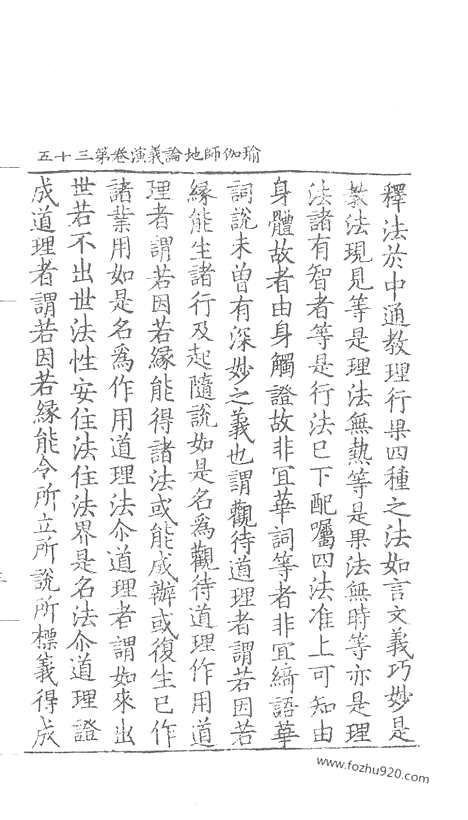 瑜伽師地論義演卷第三十五
釋法於中通教理行果四種之法如言文義巧妙是
教法現見等是理法無熱等是果法無時等亦是理
法諸有智者等是行法已下配囑四法准上可知由
身體故者由身觸證故非冝華詞等者非冝綺語華
詞說未曽有深妙之義也謂觀待道理者謂若因若
緣能生諸行及起隨說如是名爲觀待道理作用道
理者謂若因若緣能得諸法或能成辦或復生已作
諸業用如是名爲作用道理法尒道理者謂如來出
世若不出世法性安住法住法界是名法尒道理證
成道理者謂若因若緣能令所立所說所標義得成
www.fozhu920.com